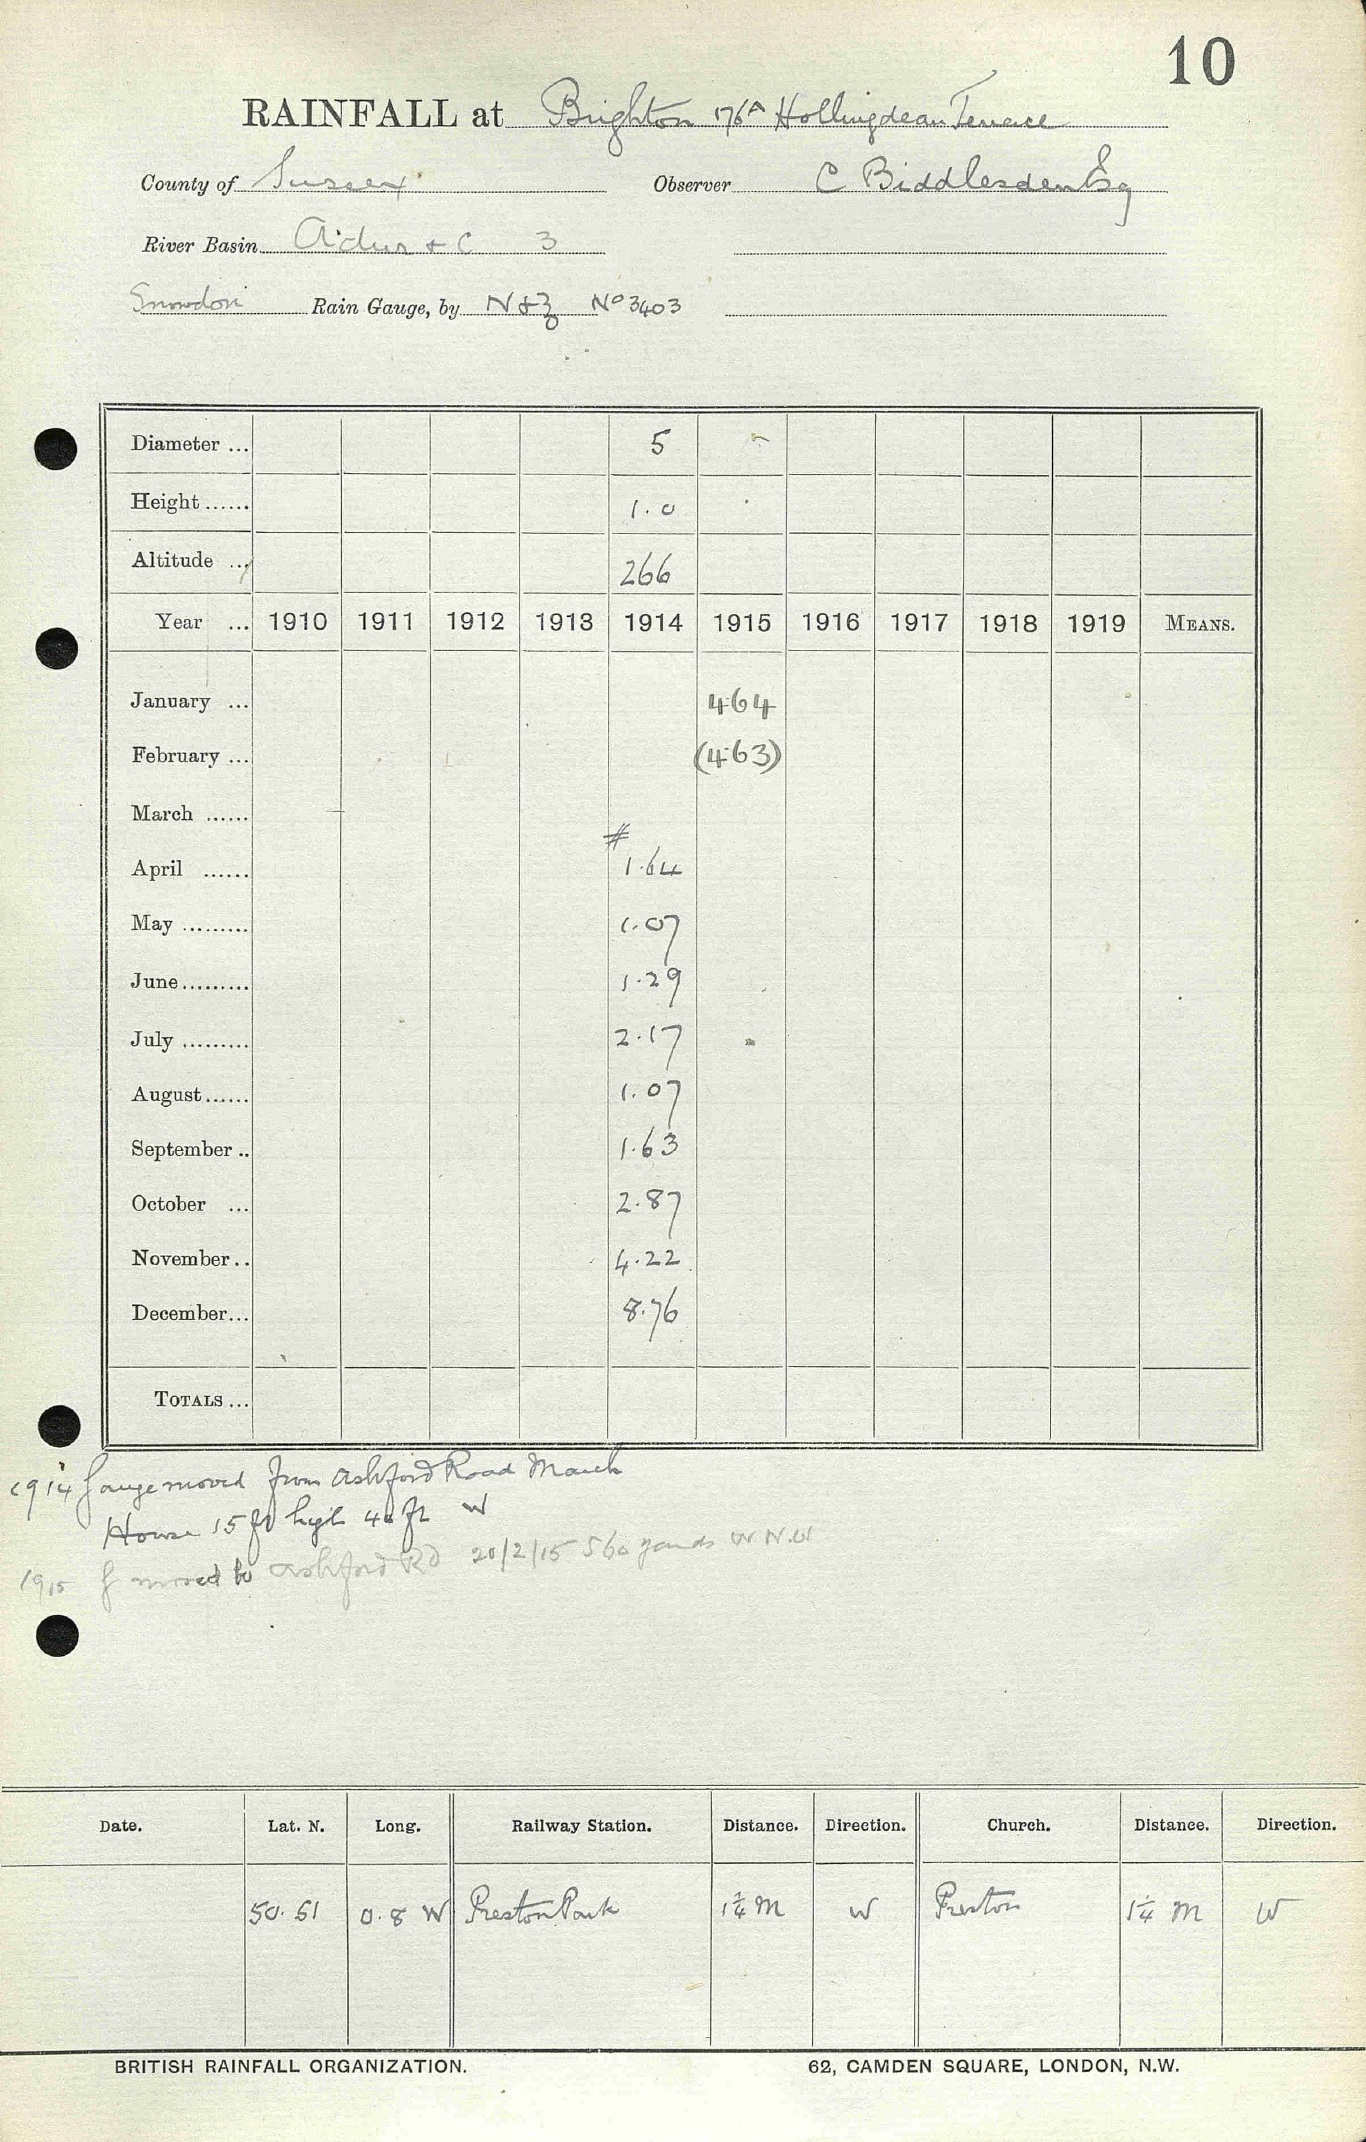 10
RAINFALL at Brighton 176A Hollingdean Terrace
County of Sussex Observer C Biddlesden Esq
River Basin Adur & C 3
Snowdon Rain Gauge, by N & Z No 3403
Diameter ... 5
Height ...... 1.0
Altitude ... 266
Year ... 1910 1911 1912 1913 1914 1915 1916 1917 1918 1919 MEANS.
January ... 4.64
February ... (4.63)
March ......
#
April ...... 1.64
May ......... 1.07
June ......... 1.29
July ......... 2.17
August ...... 1.07
September .. 1.63
October ... 2.87
November .. 4.22
December ... 8.76
TOTALS ...
1914 Gauge moved from Ashford Road March
House 15 ft high 40 ft W
1915 G moved to Ashford Rd 20/2/15 560 yards W N.W
Date. Lat. N. Long. Railway Station. Distance. Direction. Church. Distance. Direction.
50.51 0.8 W Preston Park 1¼ M W Preston 1¼ M W
BRITISH RAINFALL ORGANIZATION. 62, CAMDEN SQUARE, LONDON, N.W.